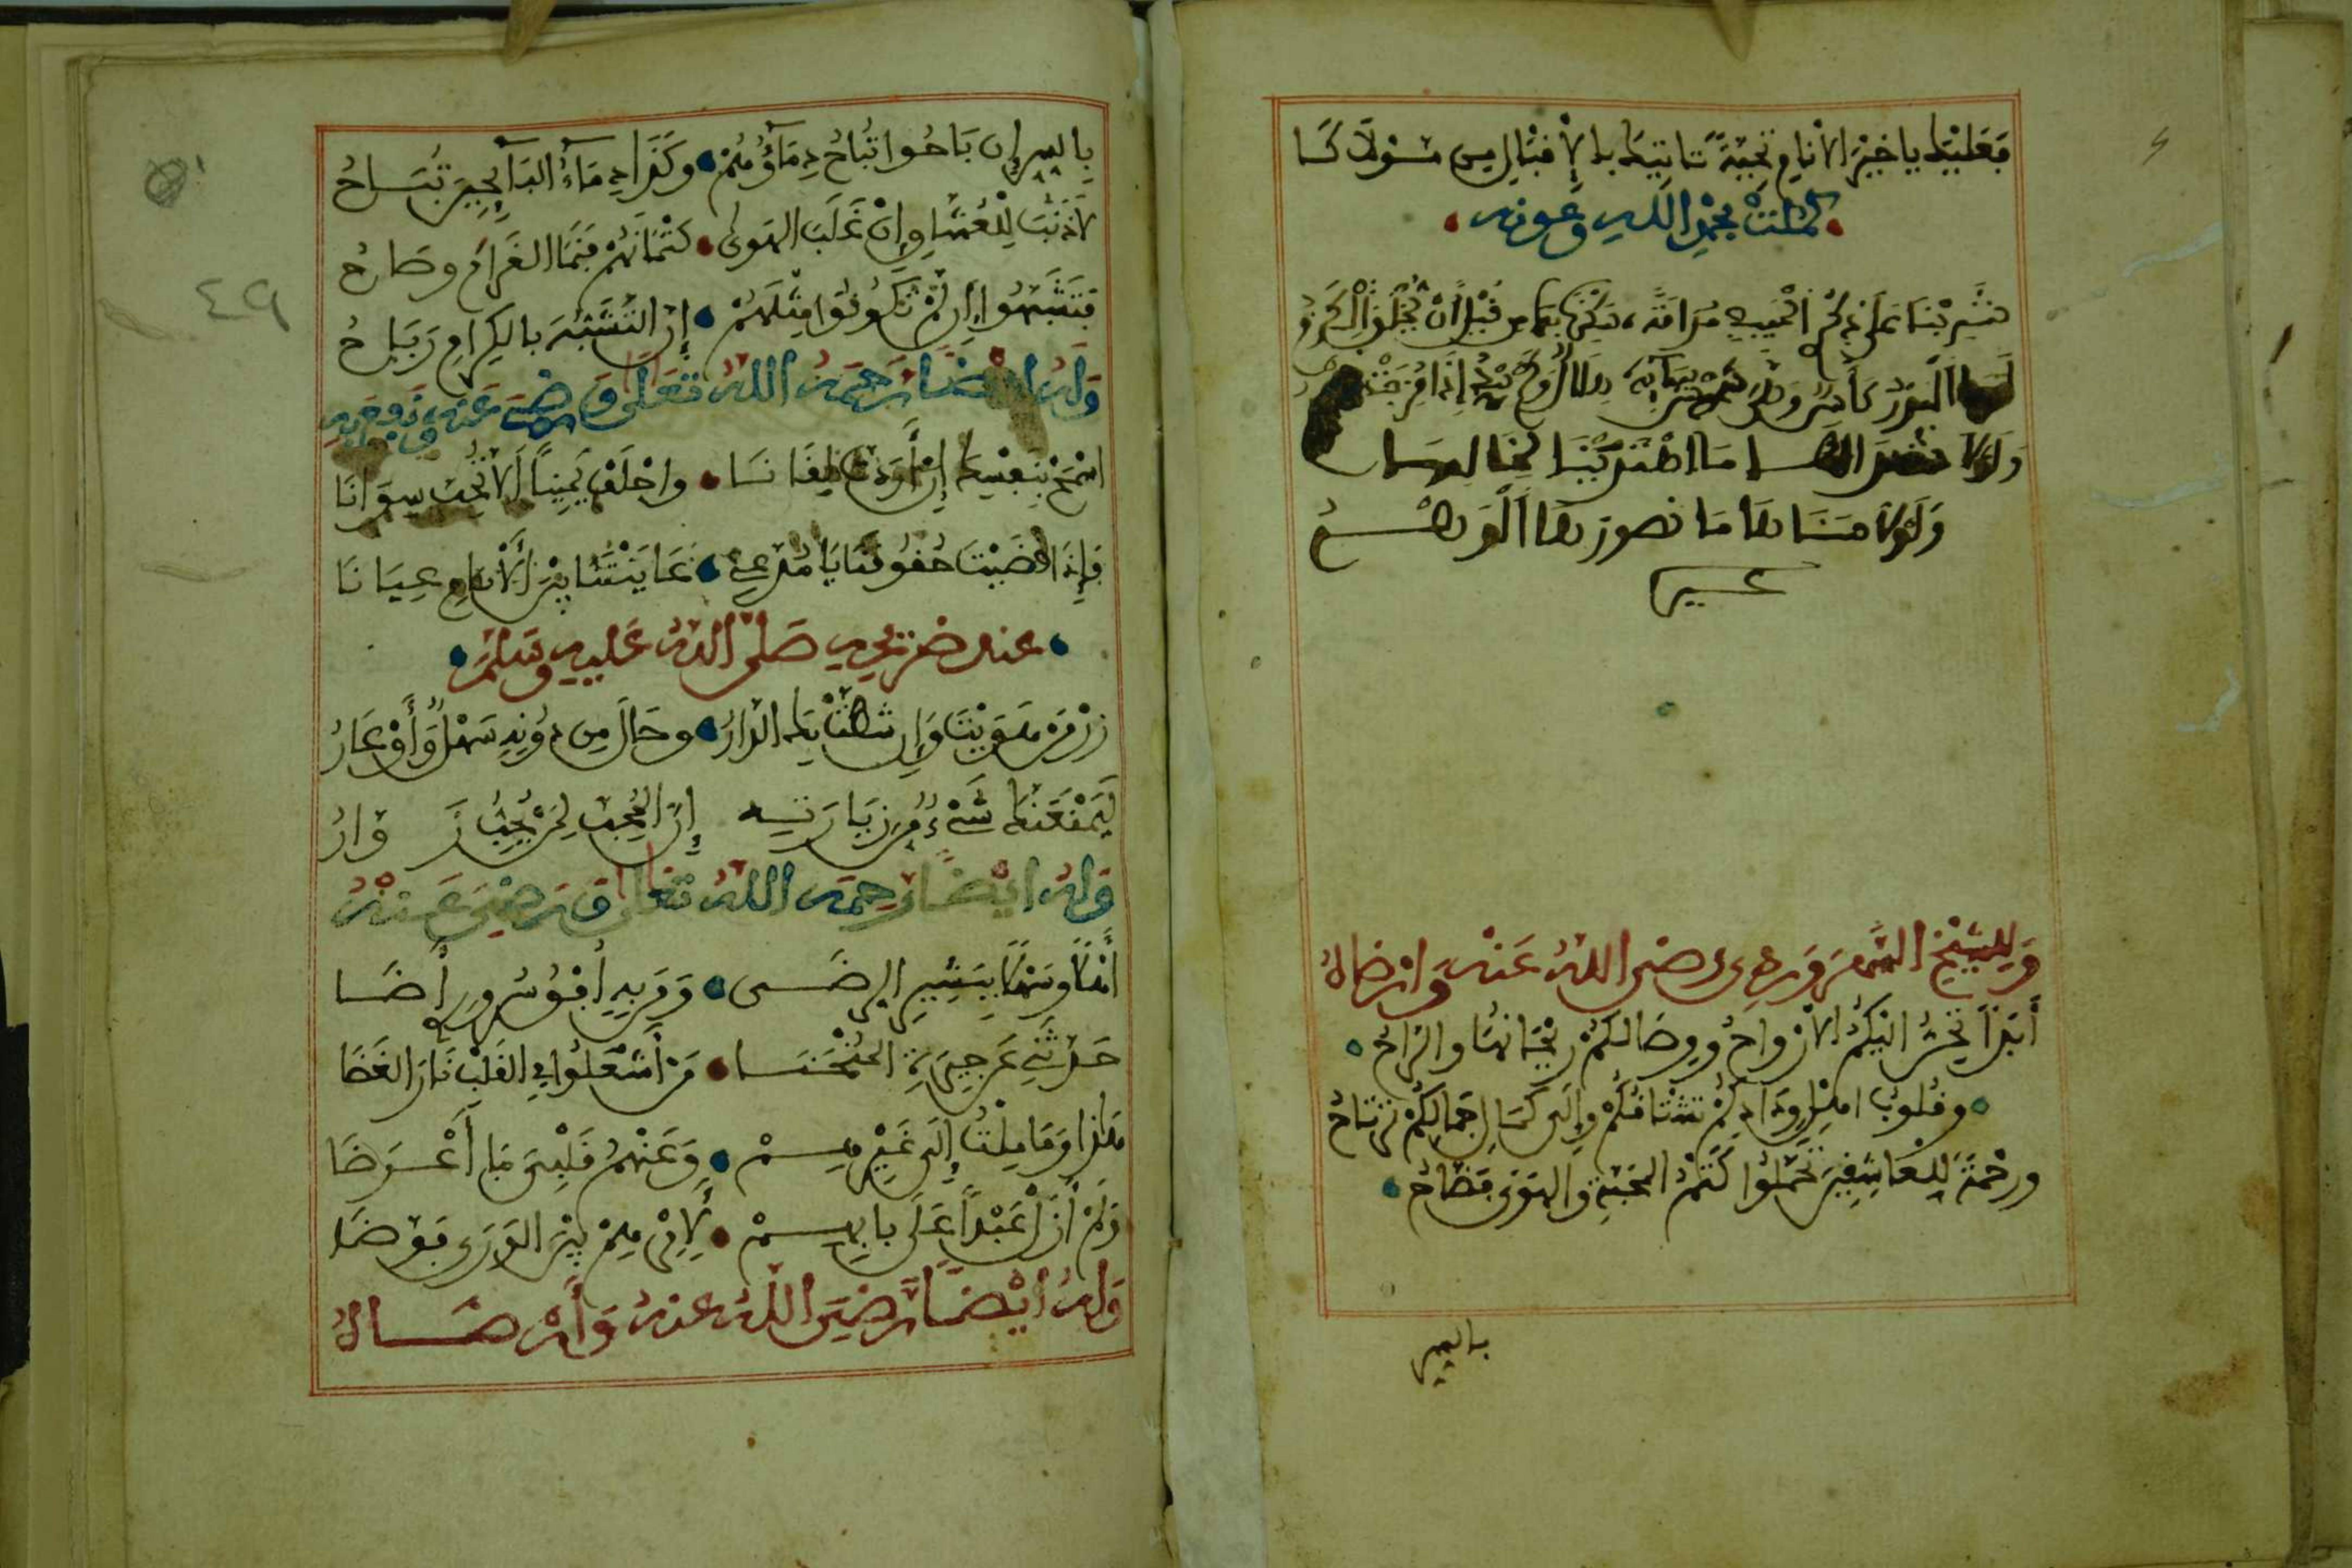 فعليك يا خير الانام تحية تاتيك بالإقبال من مولاكا
كملت بحمد الله وعونه
شربنا على ذكر الحبيب مدامة سكرنا بها من قبل أن يخلق الكرم
لها البدر كأس وهي
ولولا شذاها ما اهتدينا لحانها
ولولا سناها ما تصورها الوهم
وللشيخ السهروردي رضي الله عنه وارضاه
أبدا تحن اليكم الأرواح ووصالكم ريحانها والراح
وقلوب اهل ودادكم تشتاقكم وإلى كمال جمالكم ترتاح
ورحمة للعاشقين تحملوا كتم المحبة والهوى فضاح
بالسر
بالسر إن باحوا تباح دماؤهم وكذا دماء البآيحين تباح
لا ذنب للعشاق إن غلب الهوى كتمانهم فنما الغرام وصاحُ
فتشبهوا إن لم تكونوا مثلهم إن التشبه بالكرام رباح
وله ايضا رحمه الله تعالى ورضي عنه
اسمح بنفسك إن أردت لقانا واحلف يمينا ألا تحب سوانا
فإذا قضيت حقوقنا يا مدعي عاينتنا بين الأنام عيانا
عند ضريحه صلى الله عليه وسلم
زر من هويت وإن شطت بك الدار وحال من دونه سهل وأوعار
لا يمنعنك شيء من زيارته إن المحب لمن يحب زوار
وله ايضا رحمه الله تعالى ورضي عنه
أهلا وسهلا ببشير الرضى وقربه أفق سرور أضا
حدثني عن جيرة المنحنا من أشعلوا في القلب نار الغضا
هذا وما ملت إلى غيرهم وعنهم قلبي ما أعرضا
ولم أزل عبدا على بابهم لاكن هم بين الورى
وله ايضا رضي الله عنه وأرضاه
٤٩